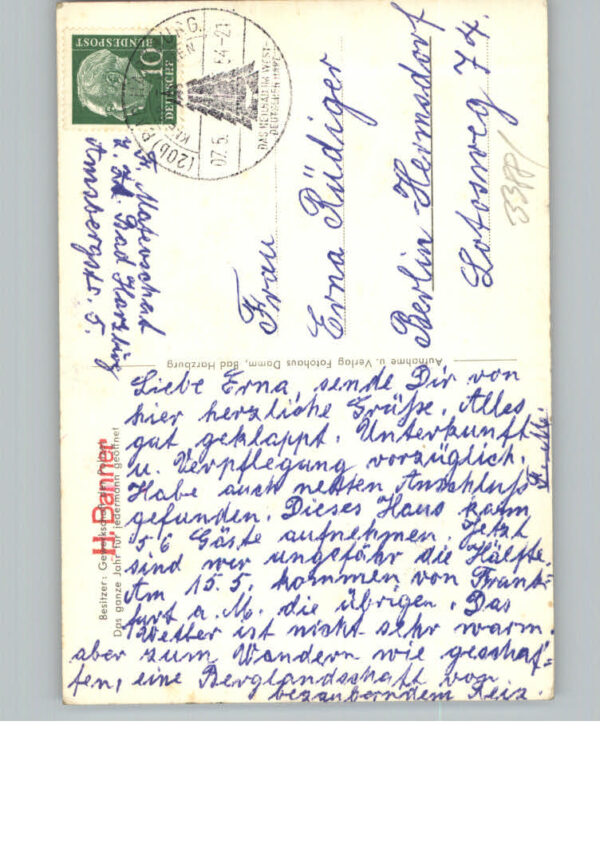 10
DEUTSCHE
BUNDESPOST
(20b)
07.5.54-21
DAS HEILBAD IM WEST-
DEUTSCHEN HARZ
Fr. Materschat
z. Zt. Bad Harzburg
Amsbergstr. 5.
Frau
Erna Rüdiger
Berlin-Hermsdorf
Lotosweg 74.
338P/
Aufnahme u. Verlag Fotohaus Damm, Bad Harzburg
Besitzer:
Das ganze Jahr für jedermann geöffnet
H. Danner
Liebe Erna, sende Dir von
hier herzliche Grüße. Alles
gut geklappt. Unterkunft
u. Verpflegung vorzüglich.
Habe auch netten Anschluß
gefunden. Dieses Haus kann
56 Gäste aufnehmen. Jetzt
sind wir ungefähr die Hälfte.
Am 15.5. kommen von Frank-
furt a. M. die übrigen. Das
Wetter ist nicht sehr warm,
aber zum Wandern wie geschaf-
fen, eine Berglandschaft von
bezauberndem Reiz.